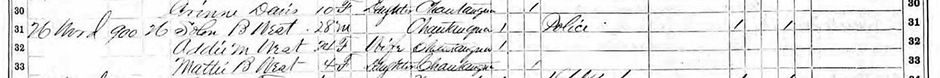 30 Corinne Davis 10 F Daughter Chautauqua 1 30
31 26 Wood 900 26 Solon B West 28 M Chautauqua 1 Police 1 1 31
32 Addie M West 24 F Wife Chautauqua 1 32
33 Mattie B West 4 F Daughter Chautauqua 1 33